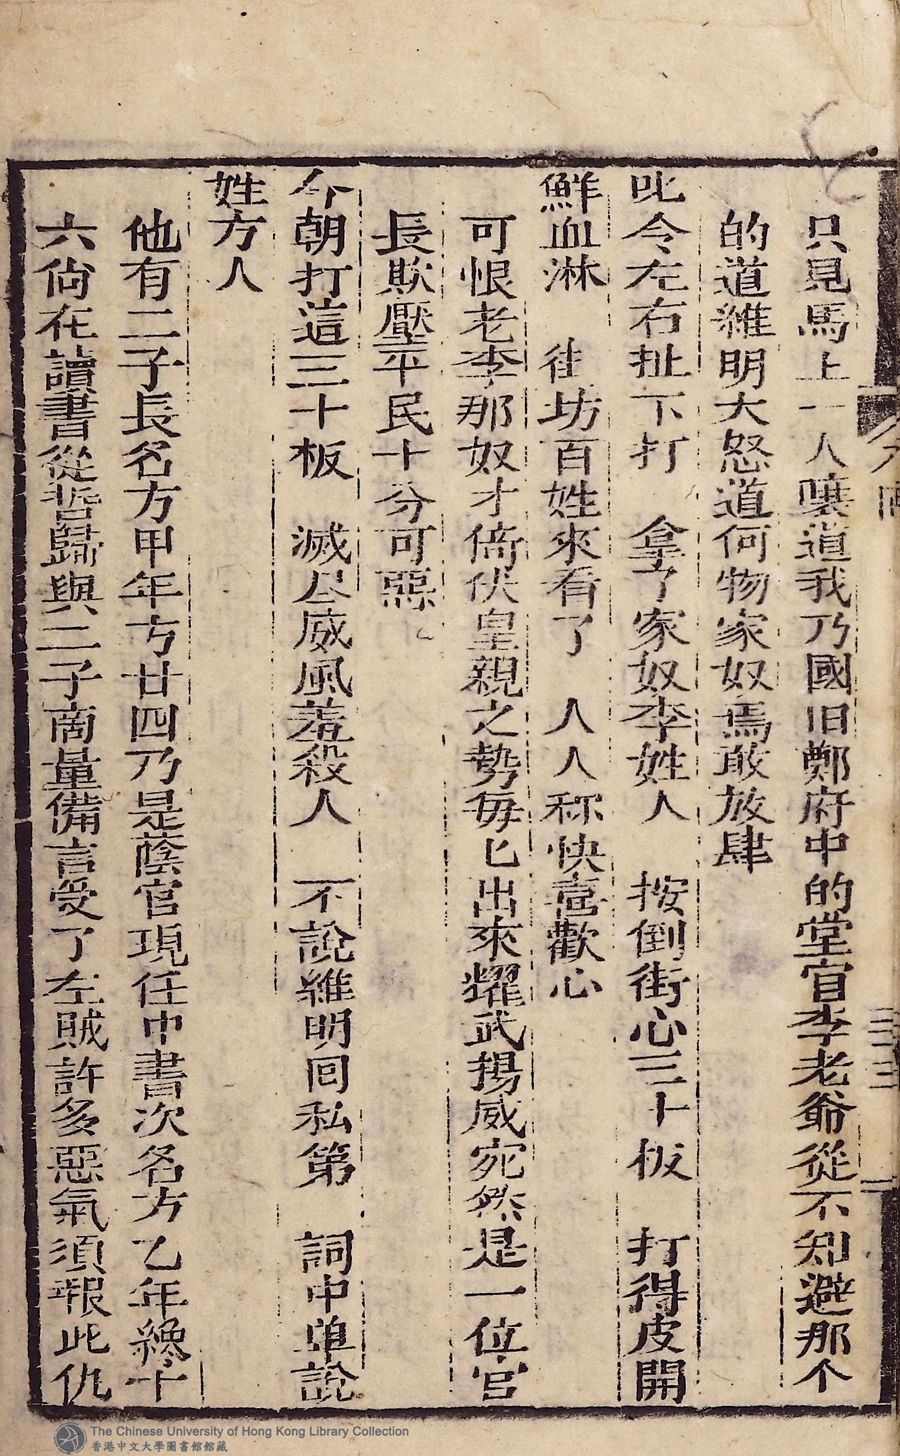 只見馬上一人嚷道我乃國旧鄭府中的堂官李老爺從不知避那个
的道維明大怒道何物家奴焉敢放肆
叱令左右扯下打　拿了家奴李姓人　按倒街心三十板　打得皮開
鮮血淋　徃坊百姓來看了　人人称快喜歡心
可恨老李那奴才倚伏皇親之勢每匕出來耀武揚威宛然是一位官
長欺壓平民十分可惡
今朝打這三十板　滅尽威風羞殺人　不說維明回私第　詞中单說
姓方人
他有二子長名方甲年方廿四乃是蔭官現任中書次名方乙年纔十
六尙在讀書從哲歸與二子商量備言受了左賊許多惡氣須報此仇
三十三
The Chinese University of Hong Kong Library Collection
香港中文大學圖書館館藏